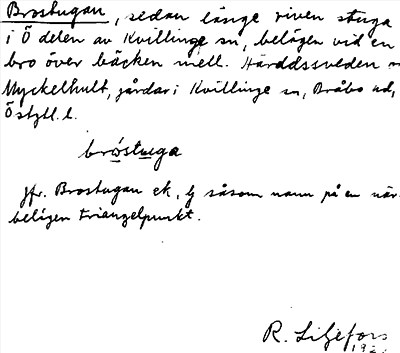 Brostugan, sedan länge riven stuga
i Ö delen av Kvillinge sn, belägen vid en
bro över bäcken mell. Härddssveden
Myckelhult, gårdar i Kvillinge sn, Bråbo hd,
Östgtl. l.
bróstuga
Jfr. Brostugan ek, såsom namn på en när-
belägen triangelpunkt.
R. Liljefors